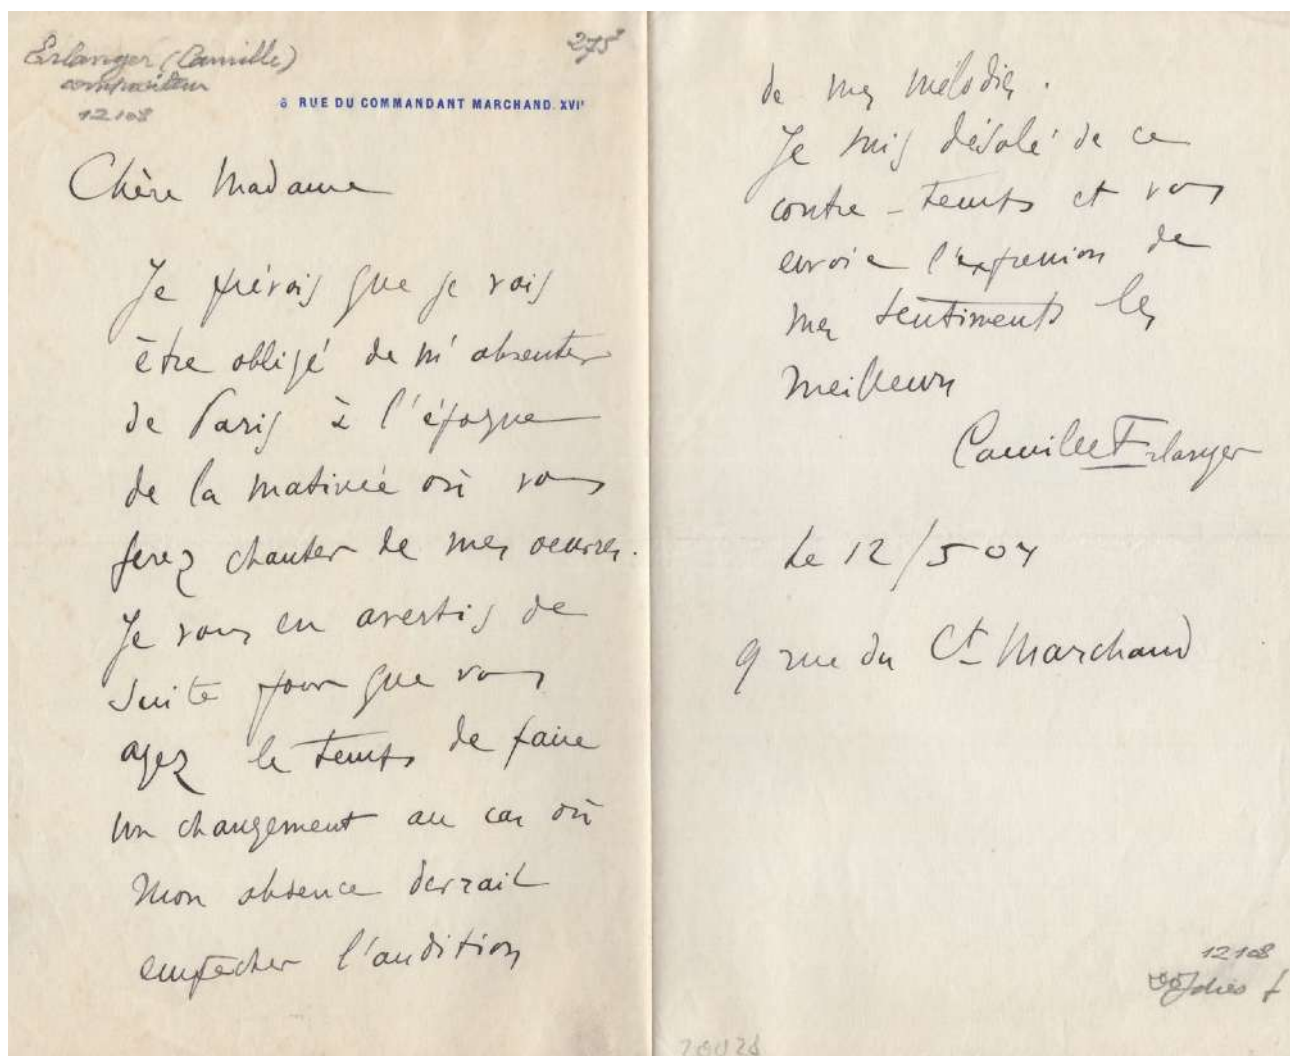 Erlanger (Camille)
compositeur
12108
275
6 RUE DU COMMANDANT MARCHAND. XVIᵉ
Chère Madame
Je prévois que je vais
être obligé de m'absenter
de Paris à l'époque
de la matinée où vous
ferez chanter de mes oeuvres.
Je vous en avertis de
suite pour que vous
ayez le temps de faire
un changement au cas où
mon absence devrait
empêcher l'audition
de mes mélodies.
Je suis désolé de ce
contre-temps et vous
envoie l'expression de
mes sentiments les
meilleurs
Camille Erlanger
le 12/5 04
9 rue du Ct Marchand
12108